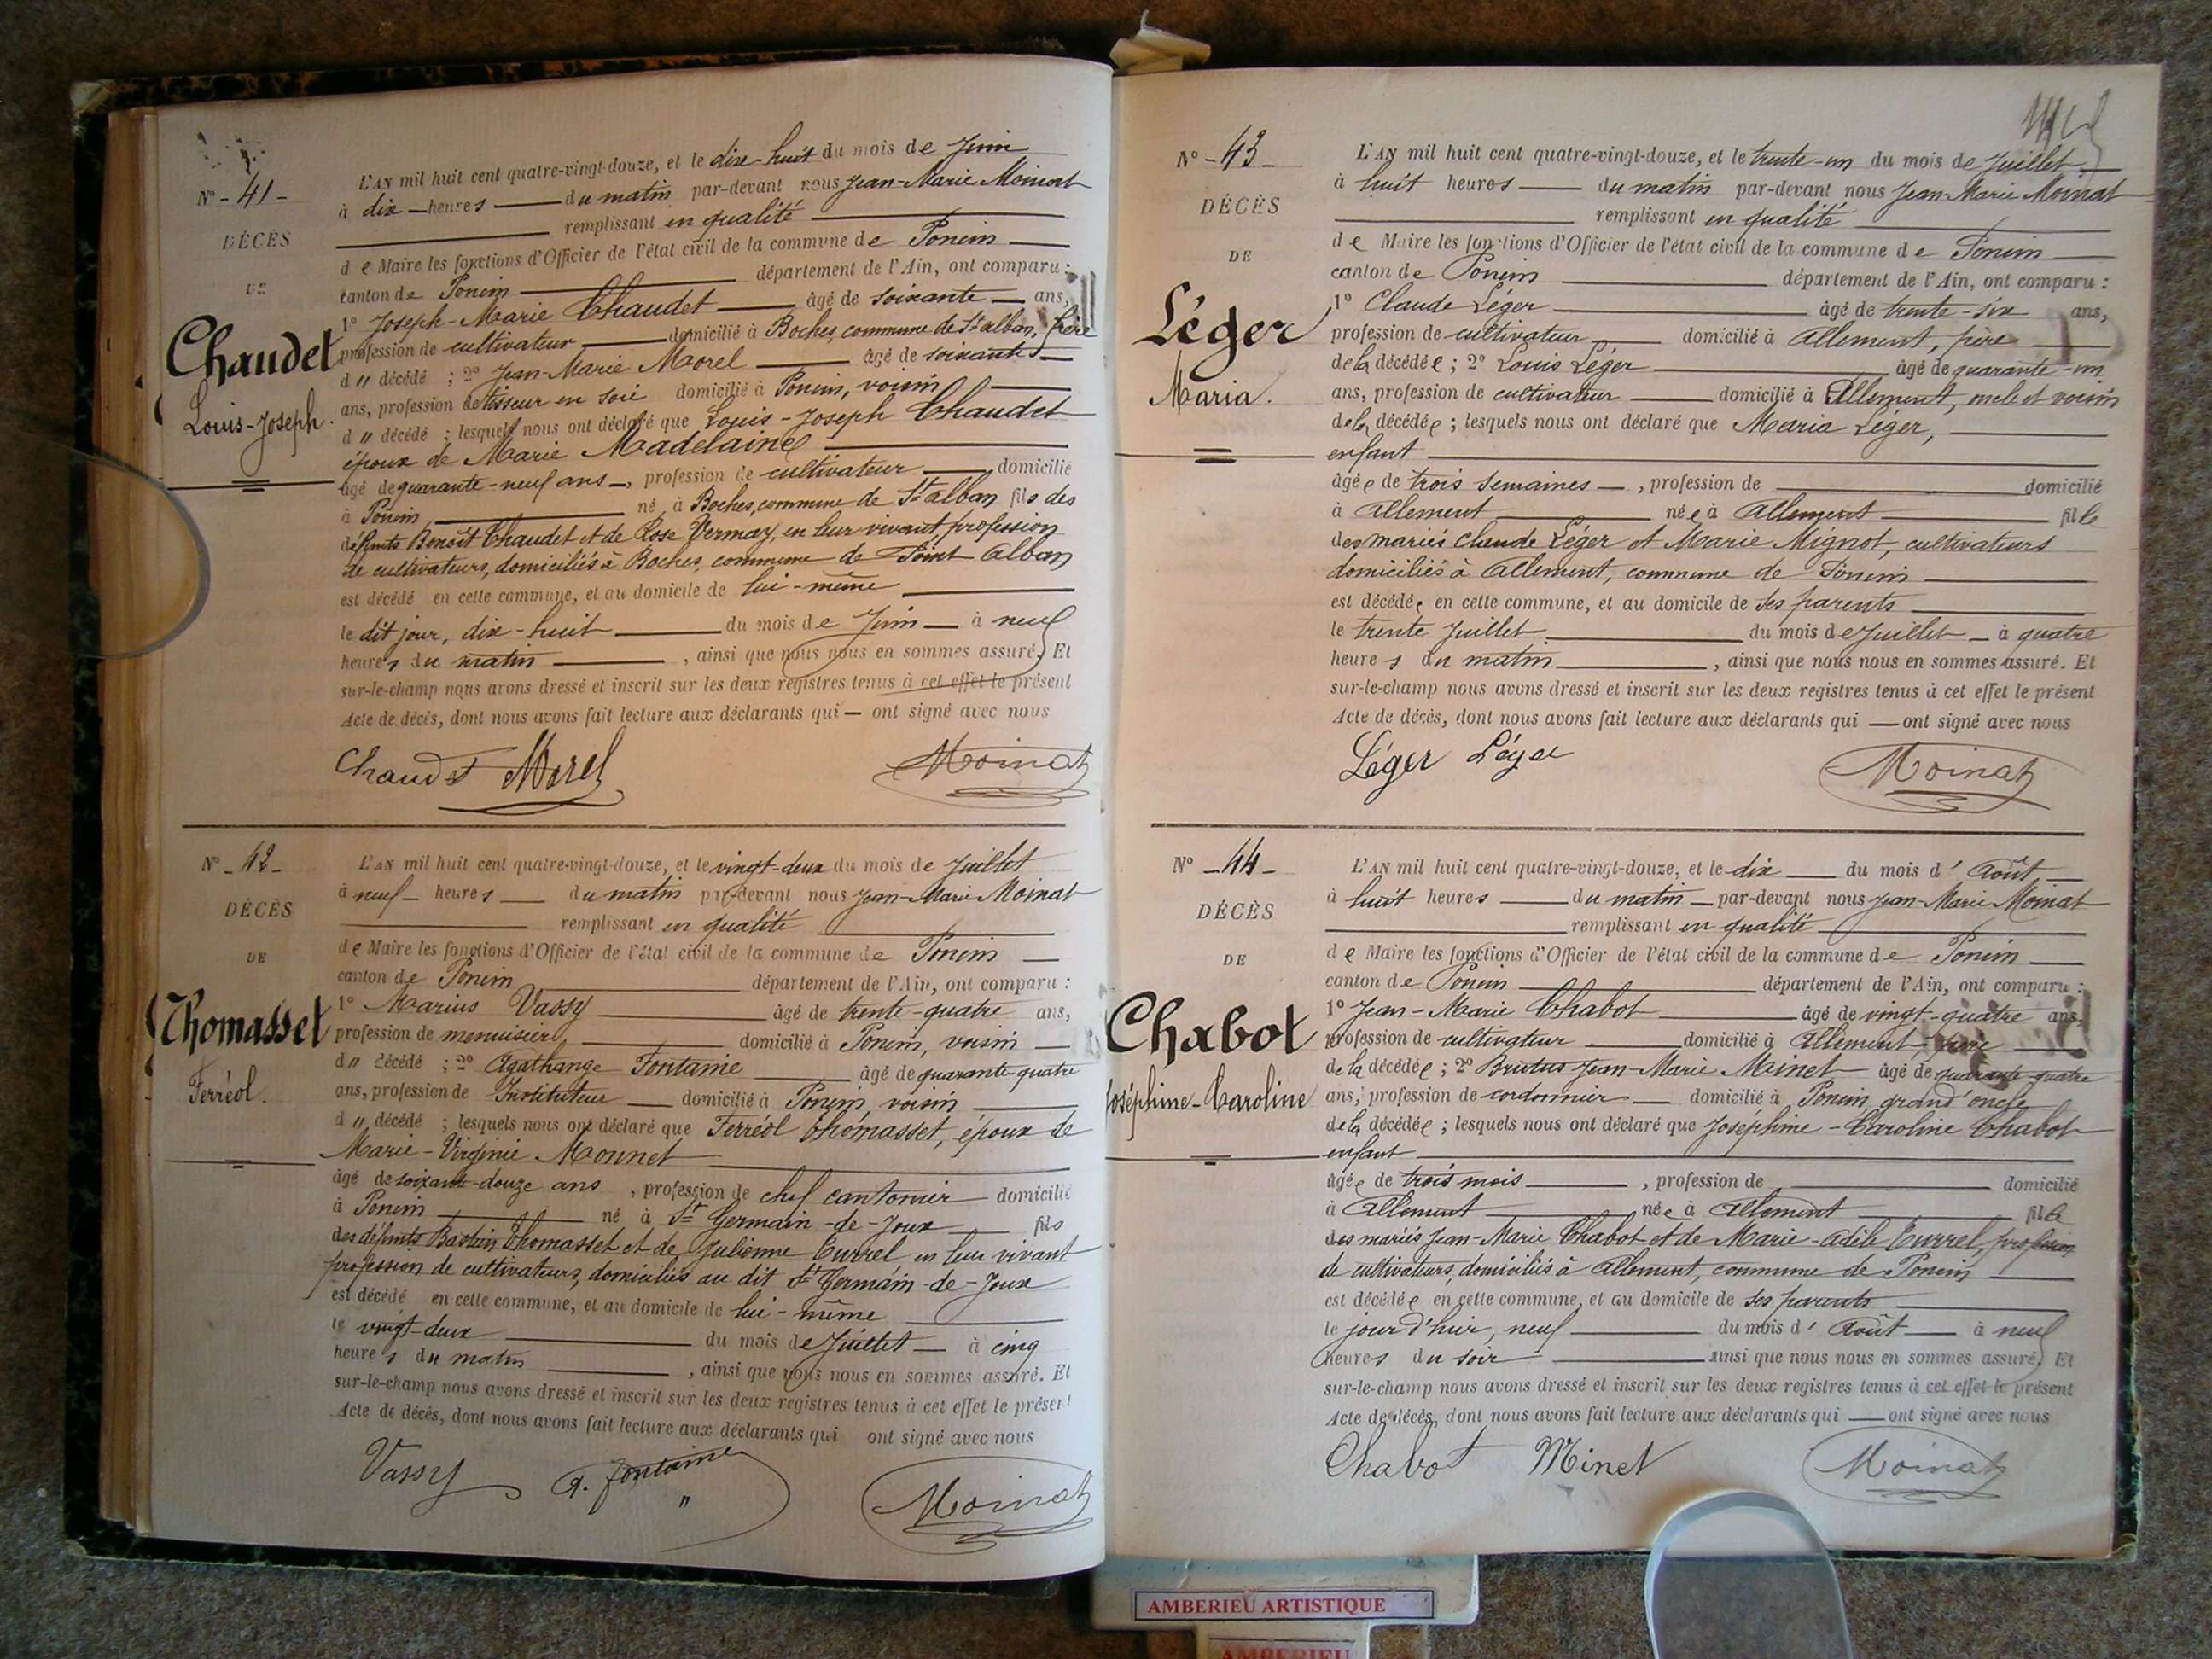 N° - 41 -
DÉCÈS
DE
Chaudet
Louis-Joseph.
L'AN mil huit cent quatre-vingt-douze, et le dix-huit du mois de Juin
à dix heures du matin par-devant nous Jean-Marie Moinat
remplissant en qualité
de Maire les fonctions d'Officier de l'état civil de la commune de Poncin
canton de Poncin département de l'Ain, ont comparu :
1° Joseph-Marie Chaudet âgé de soixante ans,
profession de cultivateur domicilié à Boches, commune de St alban, frère
d " décédé ; 2° Jean-Marie Morel âgé de soixante
ans, profession de tisseur en soie domicilié à Poncin, voisin
d " décédé ; lesquels nous ont déclaré que Louis-Joseph Chaudet
époux de Marie Madelaine
âgé de quarante-neuf ans, profession de cultivateur domicilié
à Poncin né à Boches, commune de St alban fils des
défunts Benoît Chaudet et de Rose Vermay, en leur vivant profession
de cultivateurs, domiciliés à Boches, commune de Saint Alban
est décédé en cette commune, et au domicile de lui-même
le dit jour, dix-huit du mois de Juin à neuf
heures du matin, ainsi que nous nous en sommes assuré. Et
sur-le-champ nous avons dressé et inscrit sur les deux registres tenus à cet effet le présent
Acte de décès, dont nous avons fait lecture aux déclarants qui — ont signé avec nous
Chaudet Morel Moinat
N° - 42 -
DÉCÈS
DE
Thomasset
Ferréol.
L'AN mil huit cent quatre-vingt-douze, et le vingt-deux du mois de Juillet
à neuf heures du matin par-devant nous Jean-Marie Moinat
remplissant en qualité
de Maire les fonctions d'Officier de l'état civil de la commune de Poncin
canton de Poncin département de l'Ain, ont comparu :
1° Marius Vassy âgé de trente-quatre ans,
profession de menuisier domicilié à Poncin, voisin
d " décédé ; 2° Agathange Fontaine âgé de quarante-quatre
ans, profession de Instituteur domicilié à Poncin, voisin
d " décédé ; lesquels nous ont déclaré que Ferréol Thomasset, époux de
Marie-Virginie Monnet
âgé de soixante-douze ans, profession de chef cantonnier domicilié
à Poncin né à St Germain-de-Joux fils
des défunts Bastien Thomasset et de Julienne Currel en leur vivant
profession de cultivateurs, domiciliés au dit St Germain-de-Joux
est décédé en cette commune, et au domicile de lui-même
le vingt-deux du mois de Juillet à cinq
heures du matin, ainsi que nous nous en sommes assuré. Et
sur-le-champ nous avons dressé et inscrit sur les deux registres tenus à cet effet le présent
Acte de décès, dont nous avons fait lecture aux déclarants qui ont signé avec nous
Vassy A. Fontaine Moinat
N° - 43 -
DÉCÈS
DE
Léger
Maria.
L'AN mil huit cent quatre-vingt-douze, et le trente-un du mois de Juillet
à huit heures du matin par-devant nous Jean-Marie Moinat
remplissant en qualité
de Maire les fonctions d'Officier de l'état civil de la commune de Poncin
canton de Poncin département de l'Ain, ont comparu :
1° Claude Léger âgé de trente-six ans,
profession de cultivateur domicilié à Allement, père
de la décédée ; 2° Louis Léger âgé de quarante-un
ans, profession de cultivateur domicilié à Allement, oncle et voisin
de la décédée ; lesquels nous ont déclaré que Maria Léger,
enfant
âgée de trois semaines, profession de domicilié
à Allement née à Allement fille
des mariés Claude Léger et Marie Mignot, cultivateurs
domiciliés à Allement, commune de Poncin
est décédée en cette commune, et au domicile de ses parents
le trente Juillet du mois de Juillet à quatre
heures du matin, ainsi que nous nous en sommes assuré. Et
sur-le-champ nous avons dressé et inscrit sur les deux registres tenus à cet effet le présent
Acte de décès, dont nous avons fait lecture aux déclarants qui — ont signé avec nous
Léger Léger Moinat
N° - 44 -
DÉCÈS
DE
Chabot
Joséphine-Caroline
L'AN mil huit cent quatre-vingt-douze, et le dix du mois d' Août
à huit heures du matin par-devant nous Jean-Marie Moinat
remplissant en qualité
de Maire les fonctions d'Officier de l'état civil de la commune de Poncin
canton de Poncin département de l'Ain, ont comparu :
1° Jean-Marie Chabot âgé de vingt-quatre ans,
profession de cultivateur domicilié à Allement, père
de la décédée ; 2° Brutus Jean-Marie Mainet âgé de quarante-quatre
ans, profession de cordonnier domicilié à Poncin, grand'oncle
de la décédée ; lesquels nous ont déclaré que Joséphine-Caroline Chabot
enfant
âgée de trois mois, profession de domicilié
à Allement née à Allement fille
des mariés Jean-Marie Chabot et de Marie-Adèle Currel, profession
de cultivateurs, domiciliés à Allement, commune de Poncin
est décédée en cette commune, et au domicile de ses parents
le jour d'hier, neuf du mois d' Août à neuf
heures du soir ainsi que nous nous en sommes assuré. Et
sur-le-champ nous avons dressé et inscrit sur les deux registres tenus à cet effet le présent
Acte de décès, dont nous avons fait lecture aux déclarants qui — ont signé avec nous
Chabot Minet Moinat
AMBERIEU ARTISTIQUE
AMBERIEU